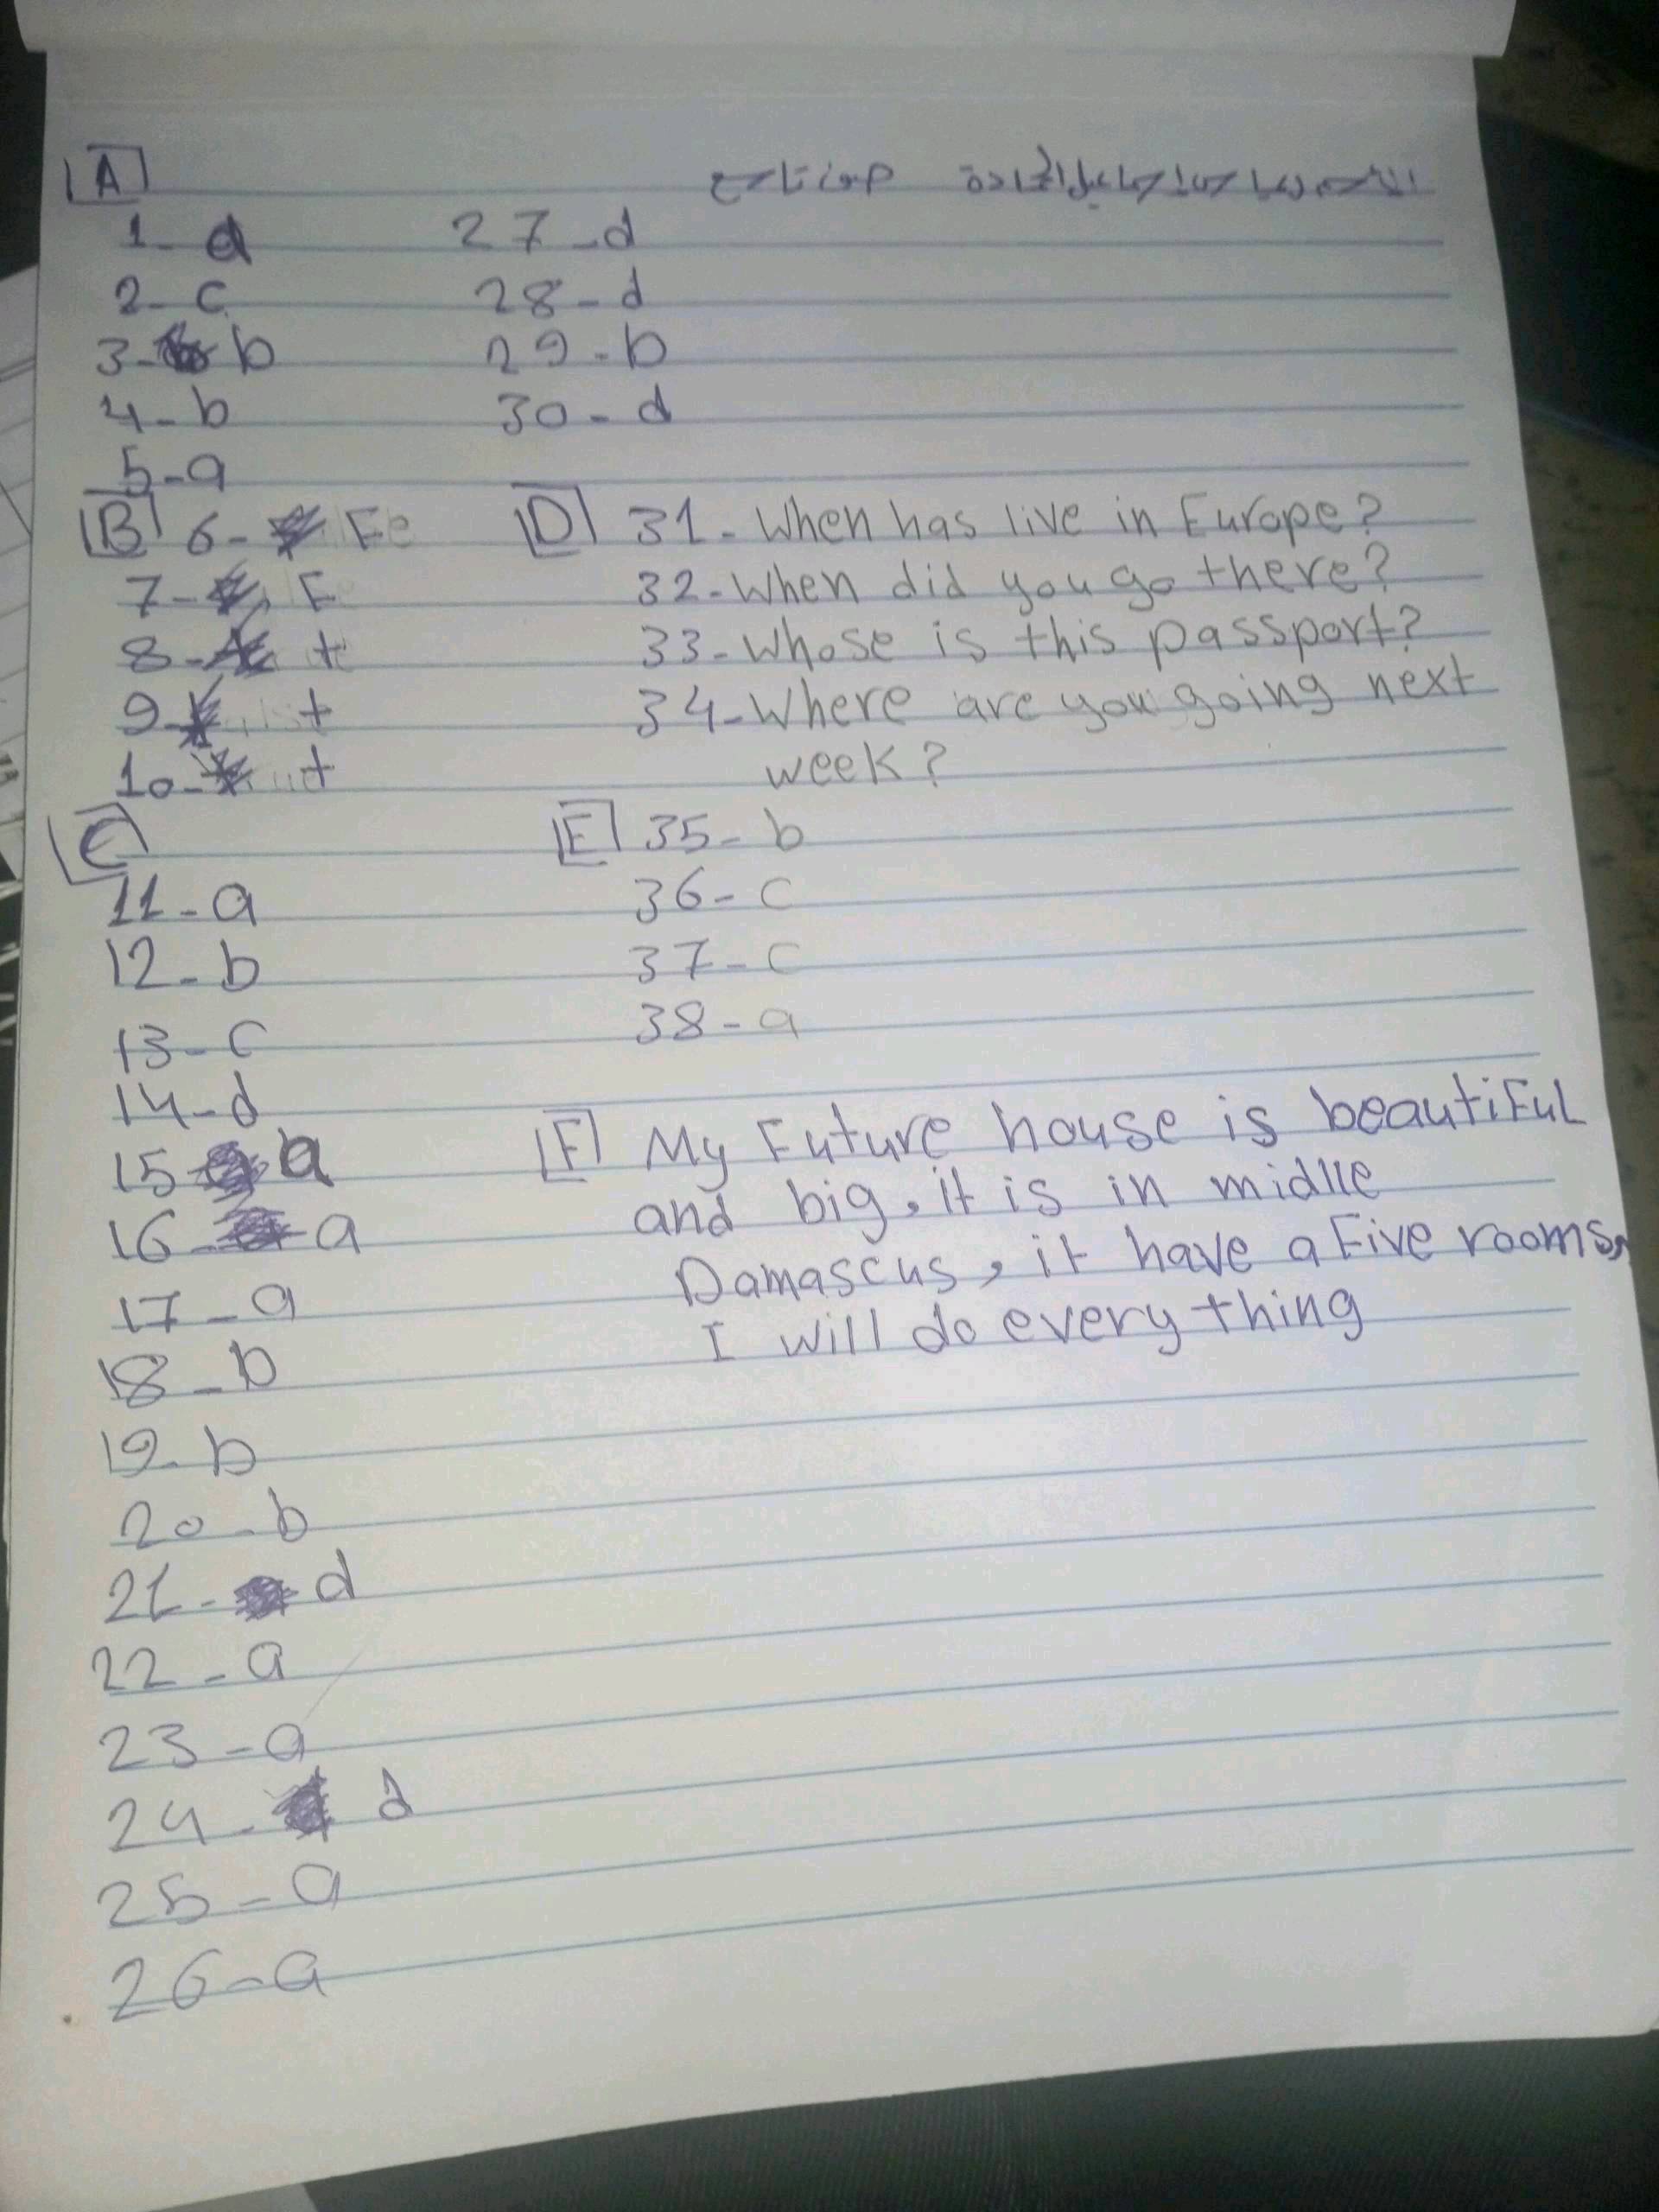 A
صف تاسع
1- d
2- c
3- b
4- b
5- a
B 6- F
7- F
8- t
9- t
10- t
C
11- a
12- b
13- c
14- d
15 a
16- a
17- a
18- b
19- b
20- b
21- d
22- a
23- a
24- d
25- a
26- a
27- d
28- d
29- b
30- d
D 31- When has live in Europe?
32- When did you go there?
33- Whose is this passport?
34- Where are you going next
week?
E 35- b
36- c
37- c
38- a
F My Future house is beautiFul
and big, it is in midlle
Damascus, it have a Five rooms,
I will do every thing